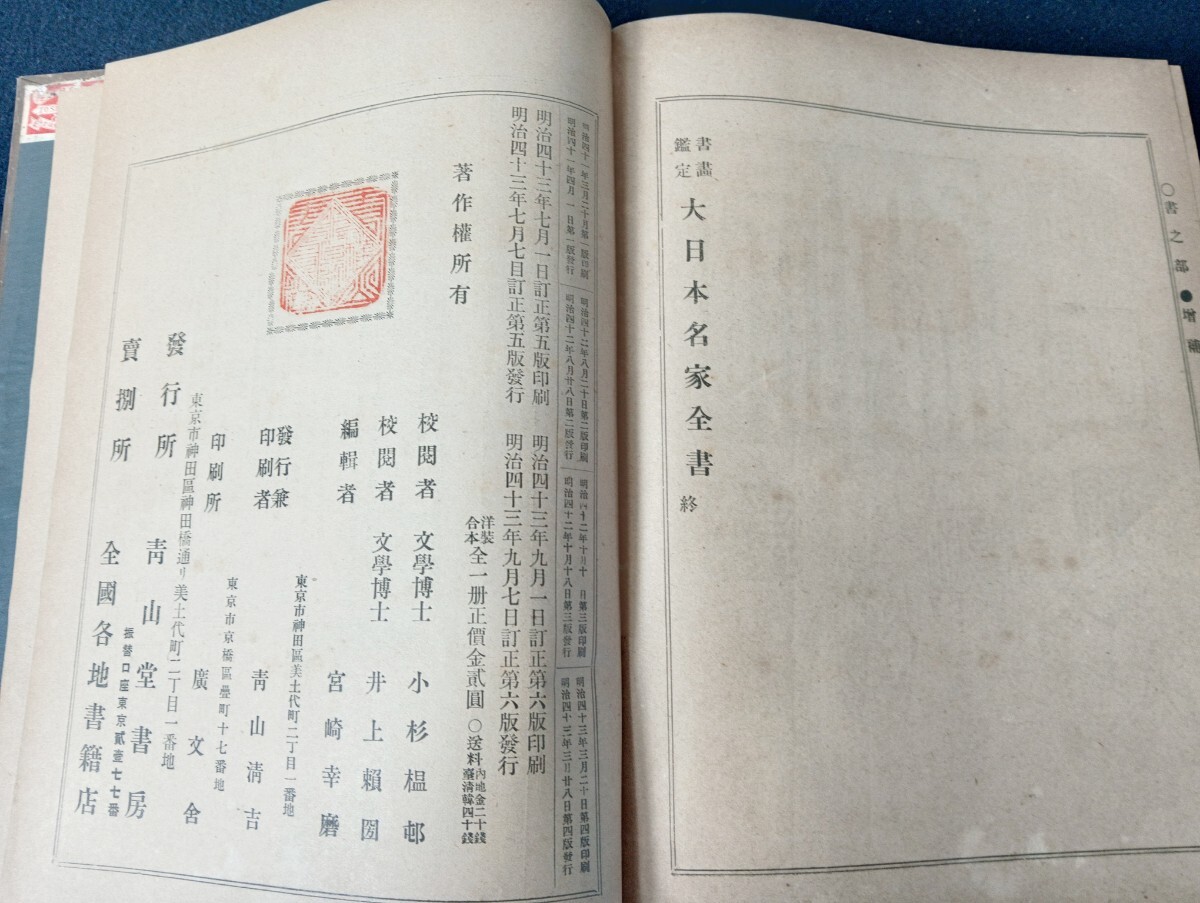 ○書之部●增補
書畫
鑑定
大日本名家全書 終
明治四十一年三月二十月第一版印刷
明治四十一年四月一日第一版發行
明治四十二年八月二十日第二版印刷
明治四十二年八月廿八日第二版發行
明治四十二年十月十日第三版印刷
明治四十二年十月十八日第三版發行
明治四十三年三月二十日第四版印刷
明治四十三年三月廿八日第四版發行
明治四十三年七月一日訂正第五版印刷
明治四十三年九月一日訂正第六版印刷
明治四十三年七月七日訂正第五版發行
明治四十三年九月七日訂正第六版發行
著作權所有
洋裝
合本
全一册正價金貳圓
○送料
內地金二十錢
臺淸韓四十錢
校閱者 文學博士 小杉榲邨
校閱者 文學博士 井上賴圀
編輯者 宮崎幸麿
發行兼
印刷者
東京市神田區美土代町二丁目一番地
靑山淸吉
印刷所
東京市京橋區疊町十七番地
廣文舍
東京市神田區神田橋通リ美土代町二丁目一番地
發行所 靑山堂書房
振替口座東京貳壹七七番
賣捌所 全國各地書籍店